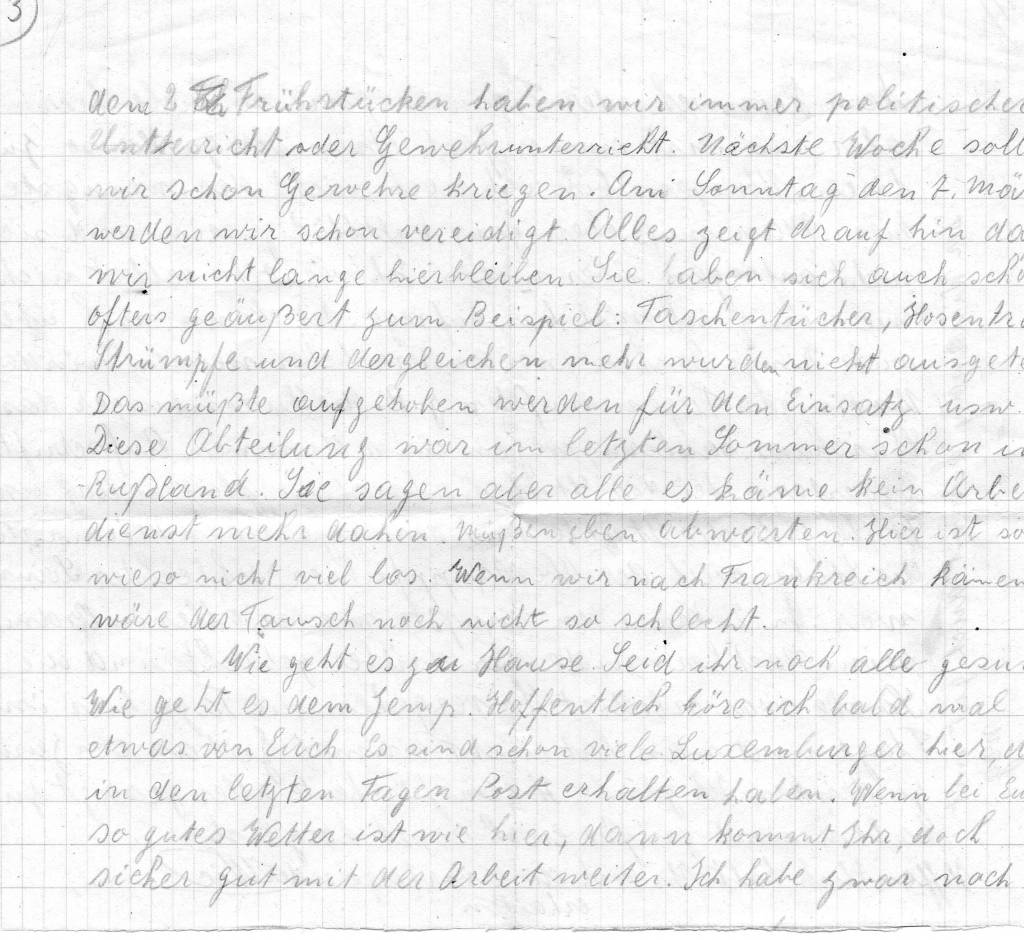 3
dem 2 Frühstücken haben wir immer politischen
Unterricht oder Gewehrunterricht. Nächste Woche soll
wir schon Gewehre kriegen. Am Sonntag den 7. Mä
werden wir schon vereidigt. Alles zeigt drauf hin da
wir nicht lange hierbleiben Sie haben sich auch scho
öfters geäußert zum Beispiel: Taschentücher, Hosentr
Strümpfe und dergleichen mehr wurden nicht ausgete
Das müßte aufgehoben werden für den Einsatz usw.
Diese Abteilung war im letzten Sommer schon in
Rußland. Sie sagen aber alle es käme kein Arbe
dienst mehr dahin. Müßen eben abwarten. Hier ist so
wieso nicht viel los. Wenn wir nach Frankreich kämen
wäre der Tausch noch nicht so schlecht.
Wie geht es zu Hause. Seid ihr noch alle gesun
Wie geht es dem Jemp. Hoffentlich höre ich bald mal
etwas von Euch. Es sind schon viele Luxemburger hier, d
in den letzten Tagen Post erhalten haben. Wenn bei Eu
so gutes Wetter ist wie hier, dann kommt Ihr, doch
sicher gut mit der Arbeit weiter. Ich habe zwar noch